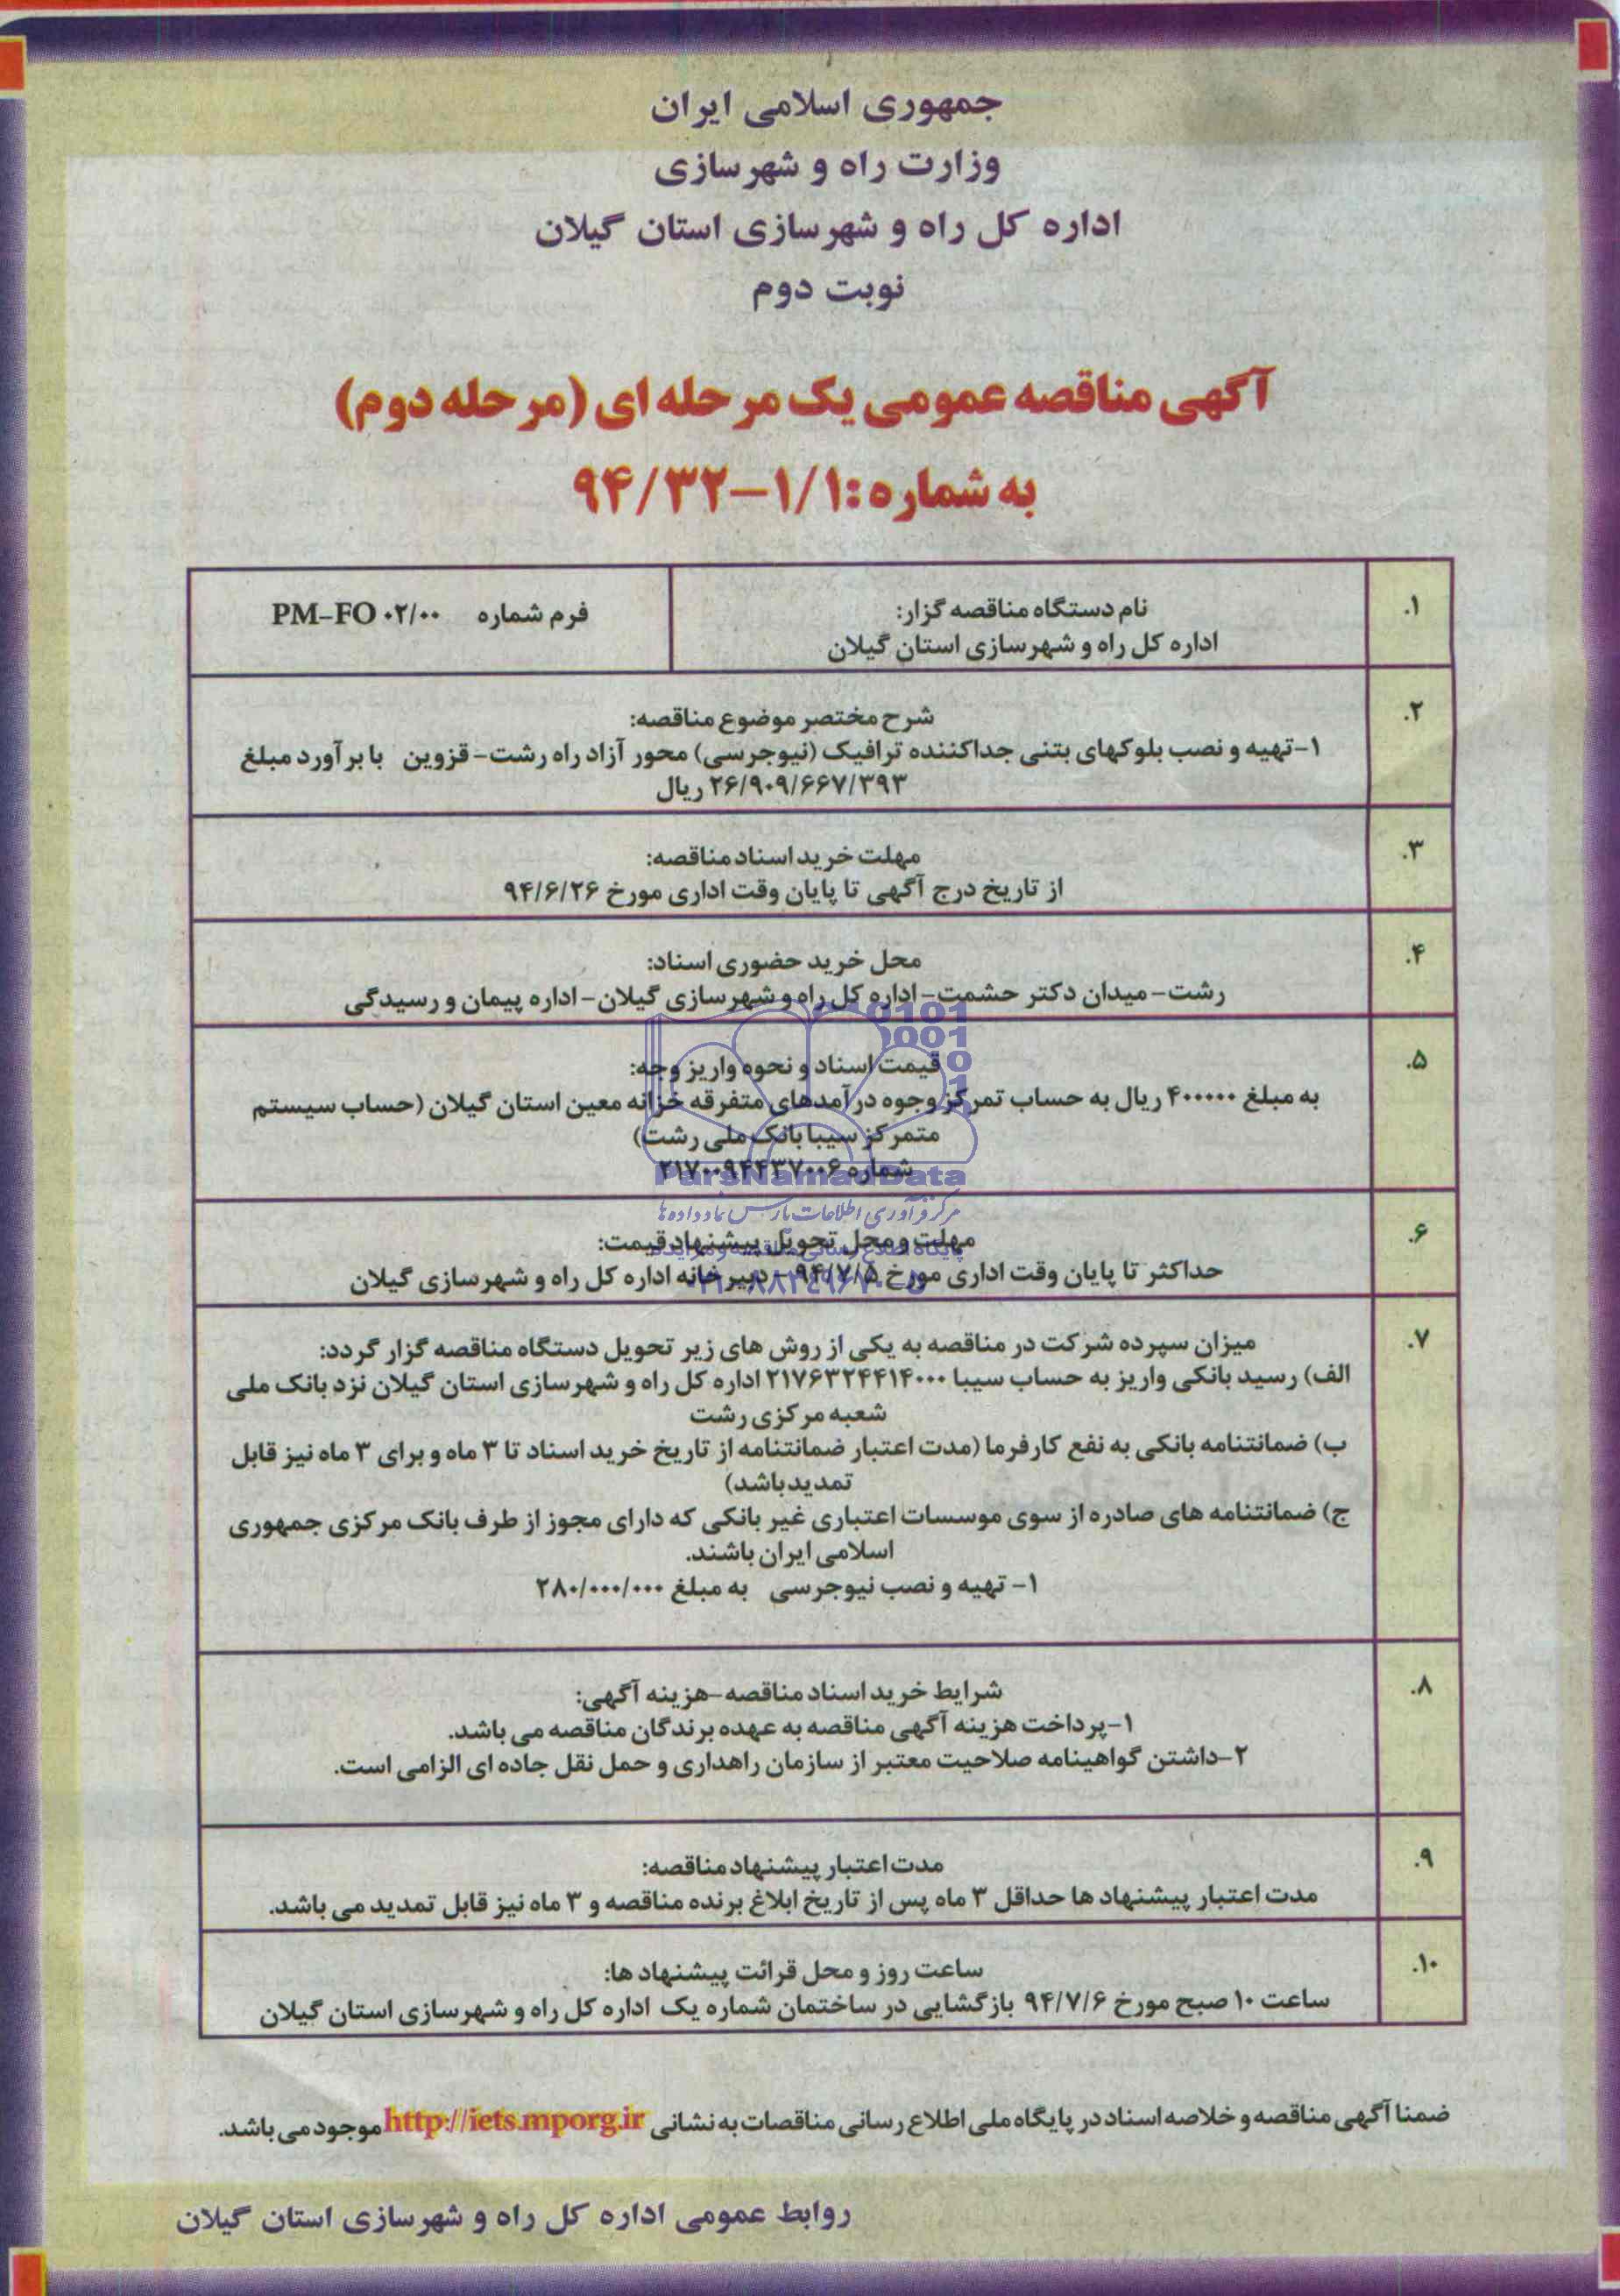 جمهوری اسلامی ایران
وزارت راه و شهرسازی
اداره کل راه و شهرسازی استان گیلان
نوبت دوم
آگهی مناقصه عمومی یک مرحله ای (مرحله دوم)
به شماره: ۱/۱-۹۴/۳۲
۱.
نام دستگاه مناقصه گزار:
اداره کل راه و شهرسازی استان گیلان
فرم شماره PM-FO ۰۲/۰۰
۲.
شرح مختصر موضوع مناقصه:
۱-تهیه و نصب بلوکهای بتنی جداکننده ترافیک (نیوجرسی) محور آزاد راه رشت- قزوین با برآورد مبلغ
۲۶/۹۰۹/۶۶۷/۳۹۳ ریال
۳.
مهلت خرید اسناد مناقصه:
از تاریخ درج آگهی تا پایان وقت اداری مورخ ۹۴/۶/۲۶
۴.
محل خرید حضوری اسناد:
رشت- میدان دکتر حشمت- اداره کل راه و شهرسازی گیلان- اداره پیمان و رسیدگی
۵.
قیمت اسناد و نحوه واریز وجه:
به مبلغ ۴۰۰۰۰۰ ریال به حساب تمرکز وجوه درآمدهای متفرقه خزانه معین استان گیلان (حساب سیستم
متمرکز سیبا بانک ملی رشت)
شماره
ParsNamadData
مرکز فرآوری اطلاعات پارس نماد داده ها
۶.
مهلت و محل تحویل پیشنهاد قیمت:
حداکثر تا پایان وقت اداری مورخ ۹۴/۷/۵ - دبیرخانه اداره کل راه و شهرسازی گیلان
۷.
میزان سپرده شرکت در مناقصه به یکی از روش های زیر تحویل دستگاه مناقصه گزار گردد:
الف) رسید بانکی واریز به حساب سیبا ۲۱۷۶۳۲۴۴۱۴۰۰۰ اداره کل راه و شهرسازی استان گیلان نزد بانک ملی
شعبه مرکزی رشت
ب) ضمانتنامه بانکی به نفع کارفرما (مدت اعتبار ضمانتنامه از تاریخ خرید اسناد تا ۳ ماه و برای ۳ ماه نیز قابل
تمدید باشد)
ج) ضمانتنامه های صادره از سوی موسسات اعتباری غیر بانکی که دارای مجوز از طرف بانک مرکزی جمهوری
اسلامی ایران باشند.
۱- تهیه و نصب نیوجرسی به مبلغ ۲۸۰/۰۰۰/۰۰۰
۸.
شرایط خرید اسناد مناقصه-هزینه آگهی:
۱-پرداخت هزینه آگهی مناقصه به عهده برندگان مناقصه می باشد.
۲-داشتن گواهینامه صلاحیت معتبر از سازمان راهداری و حمل نقل جاده ای الزامی است.
۹.
مدت اعتبار پیشنهاد مناقصه:
مدت اعتبار پیشنهاد ها حداقل ۳ ماه پس از تاریخ ابلاغ برنده مناقصه و ۳ ماه نیز قابل تمدید می باشد.
۱۰.
ساعت روز و محل قرائت پیشنهاد ها:
ساعت ۱۰ صبح مورخ ۹۴/۷/۶ بازگشایی در ساختمان شماره یک اداره کل راه و شهرسازی استان گیلان
ضمنا آگهی مناقصه و خلاصه اسناد در پایگاه ملی اطلاع رسانی مناقصات به نشانی http://iets.mporg.ir موجود می باشد.
روابط عمومی اداره کل راه و شهرسازی استان گیلان